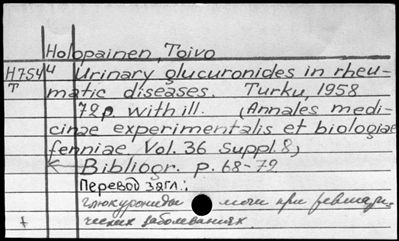 Holopainen, Toivo
H754 4 Urinary glucuronides in rheu-
T matic diseases. Turku, 1958
72p. with ill. (Annales medi-
cinae experimentalis et biologiae
fenniae Vol. 36 Suppl. 8)
Bibliogr. p. 68-72
Перевод загл.:
глюкурониды мочи при ревмати-
ческих заболеваниях.